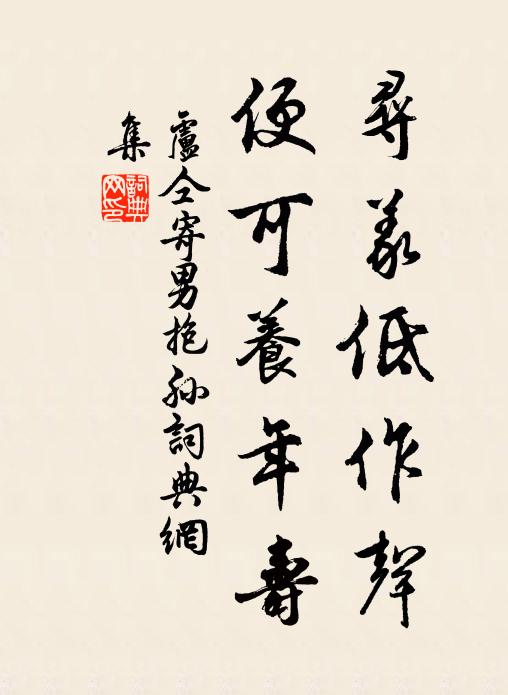 尋義低作聲
便可養年壽
盧仝寄男抱孫詞典網
集
詞典
网印